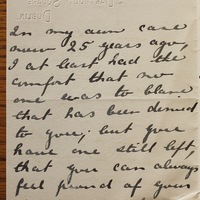 In my own case
now 25 years ago,
I at least had the
comfort that no
one was to blame
that has been denied
to you; but you
have one still left,
that you can always
feel proud of your